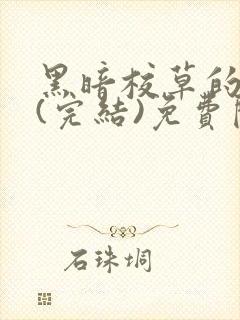 黑暗校草的
(完結)免費
石珠垌